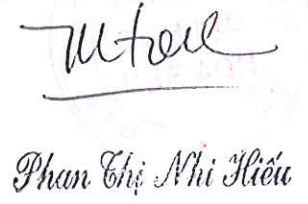 Phan Thị Nhi Hiếu